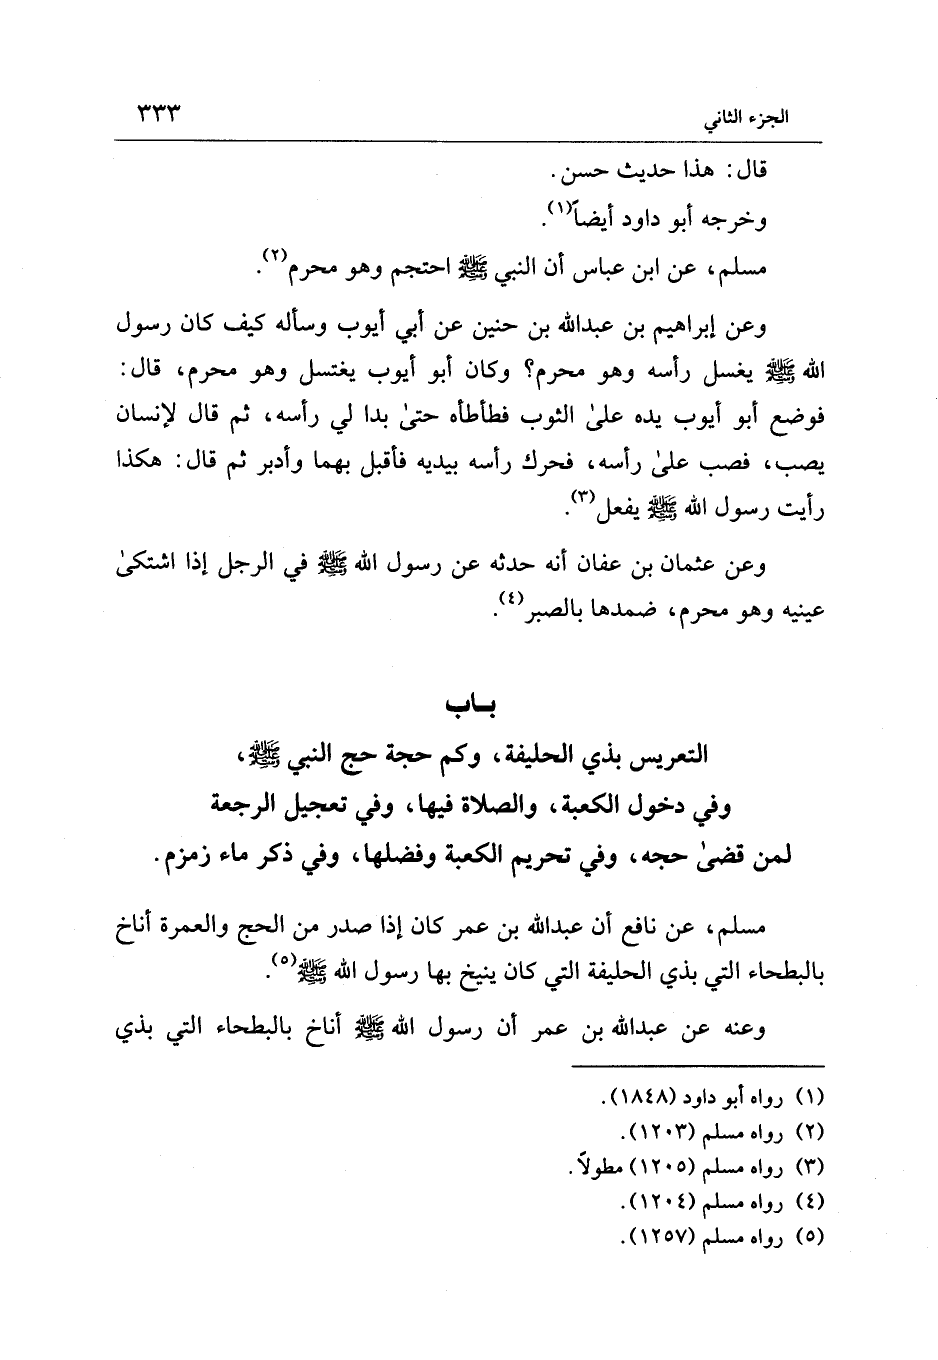 الجزء الثاني ٣٣٣
قال: هذا حديث حسن.
وخرجه أبو داود أيضاً(١).
مسلم، عن ابن عباس أن النبي ﷺ احتجم وهو محرم(٢).
وعن إبراهيم بن عبدالله بن حنين عن أبي أيوب وسأله كيف كان رسول
الله ﷺ يغسل رأسه وهو محرم؟ وكان أبو أيوب يغتسل وهو محرم، قال:
فوضع أبو أيوب يده علىٰ الثوب فطأطأه حتىٰ بدا لي رأسه، ثم قال لإنسان
يصب، فصب علىٰ رأسه، فحرك رأسه بيديه فأقبل بهما وأدبر ثم قال: هكذا
رأيت رسول الله ﷺ يفعل(٣).
وعن عثمان بن عفان أنه حدثه عن رسول الله ﷺ في الرجل إذا اشتكىٰ
عينيه وهو محرم، ضمدها بالصبر(٤).
بـاب
التعريس بذي الحليفة، وكم حجة حج النبي ﷺ،
وفي دخول الكعبة، والصلاة فيها، وفي تعجيل الرجعة
لمن قضىٰ حجه، وفي تحريم الكعبة وفضلها، وفي ذكر ماء زمزم.
مسلم، عن نافع أن عبدالله بن عمر كان إذا صدر من الحج والعمرة أناخ
بالبطحاء التي بذي الحليفة التي كان ينيخ بها رسول الله ﷺ(٥).
وعنه عن عبدالله بن عمر أن رسول الله ﷺ أناخ بالبطحاء التي بذي
(١) رواه أبو داود (١٨٤٨).
(٢) رواه مسلم (١٢٠٣).
(٣) رواه مسلم (١٢٠٥) مطولاً.
(٤) رواه مسلم (١٢٠٤).
(٥) رواه مسلم (١٢٥٧).